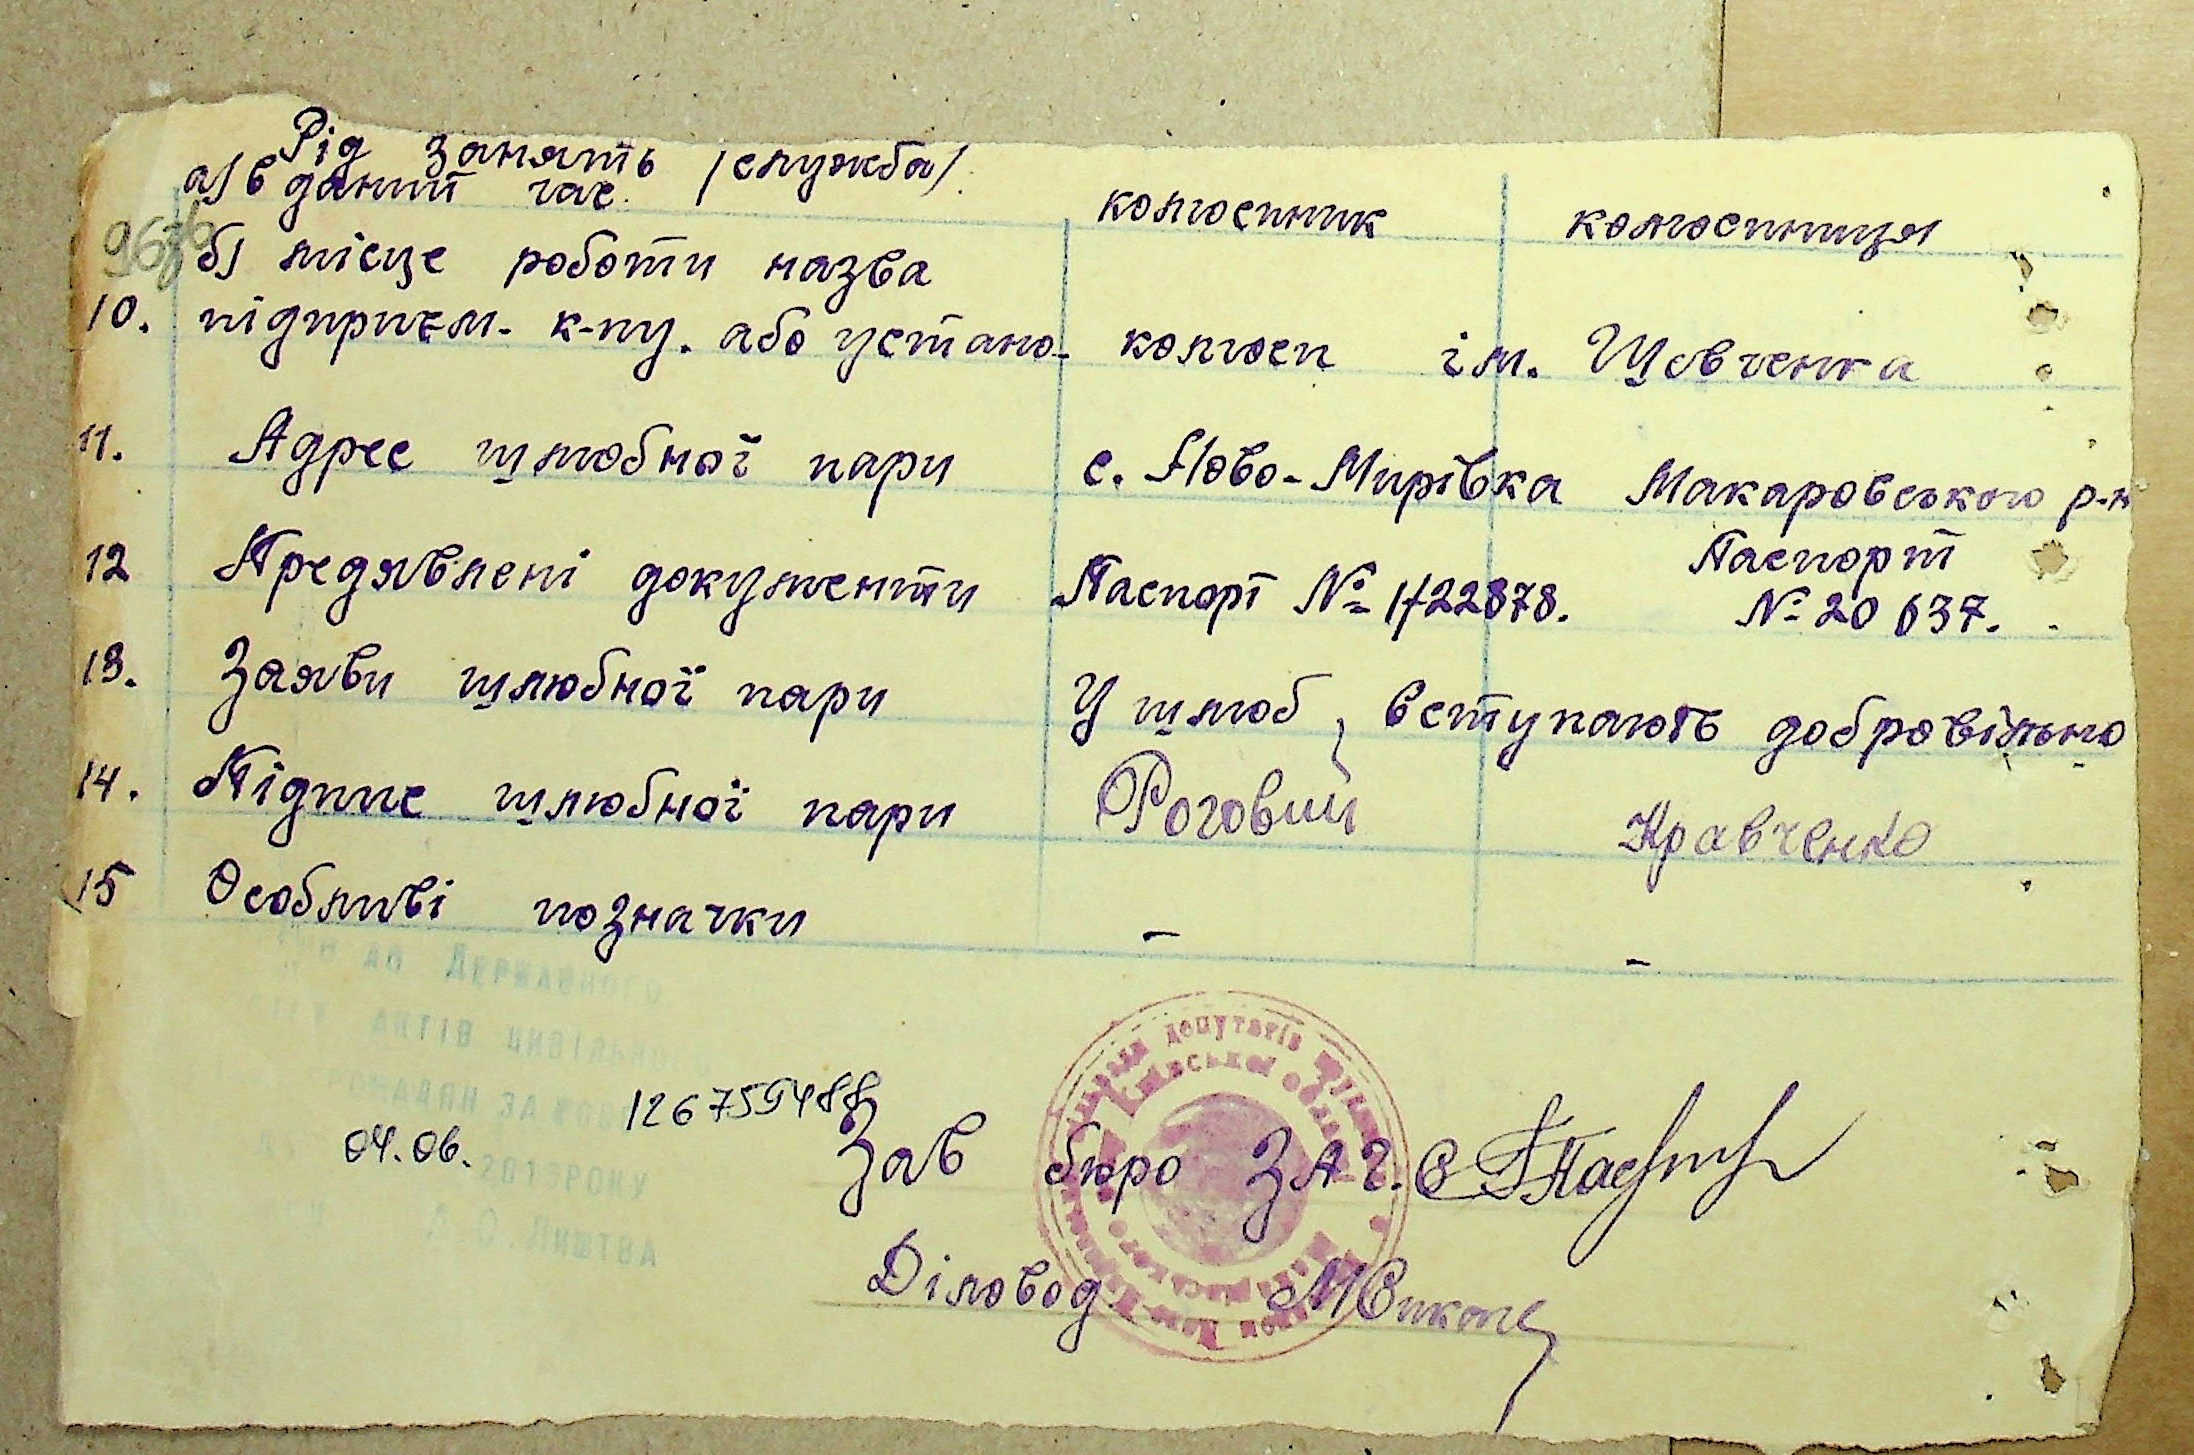 Рід занять /служба/
а/ в даний час. колгоспник колгоспниця
б/ місце роботи назва
10. підприєм. к-пу. або устано- колгосп ім. Шевченка
11. Адрес шлюбної пари с. Ново-Мирівка Макаровського р-н
12 Предявлені документи Паспорт № 1/22878. Паспорт
№ 20637.
13. Заяви шлюбної пари У шлюб вступають добровільно
14. Підпис шлюбної пари Роговий Кравченко
15 Особливі позначки - -
до Державного
актів цивільно
громадян за
126759488
04.06. 201 року
Зав бюро ЗАГС
О. Лиштва
Діловод
депутатів
Київської